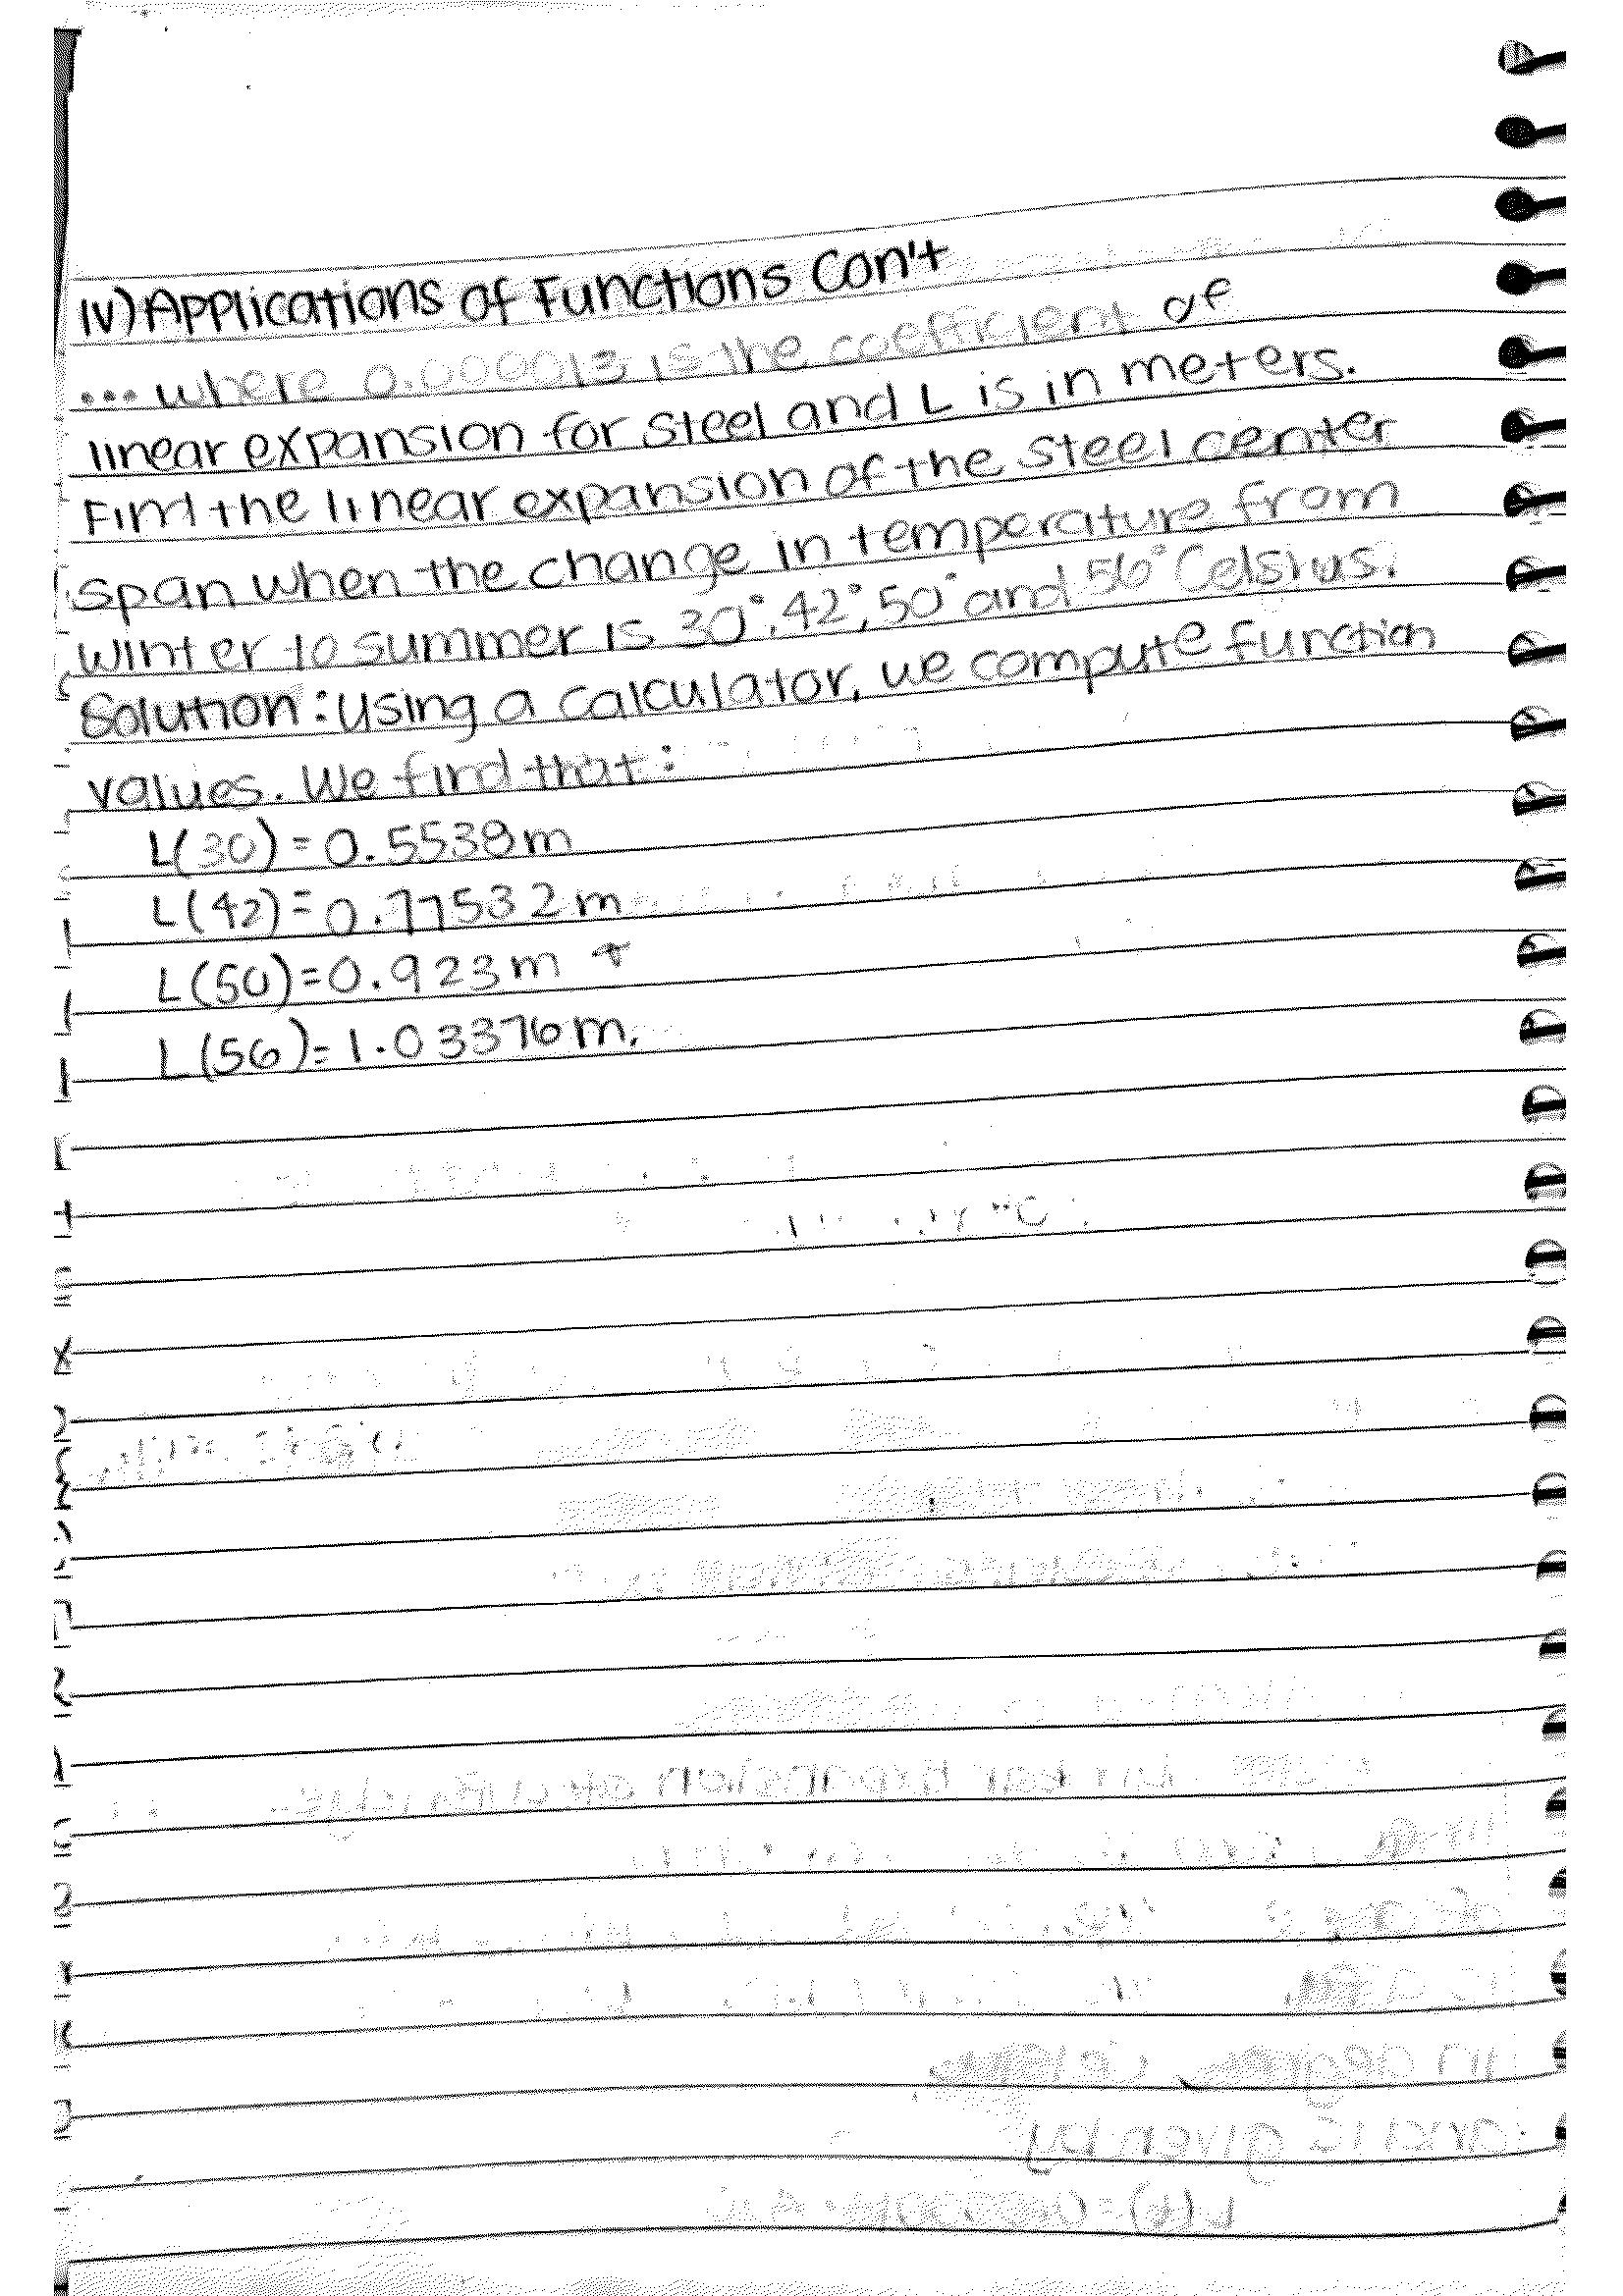 IV) Applications of Functions Con't
... where 0.000013 is the coefficient of
linear expansion for steel and L is in meters.
Find the linear expansion of the steel center
span when the change in temperature from
winter to summer is 30°, 42°, 50° and 56° Celsius.
Solution: Using a calculator, we compute function
values. We find that:
L(30) = 0.5538m
L(42) = 0.77532m
L(50) = 0.923m
L(56) = 1.03376m.